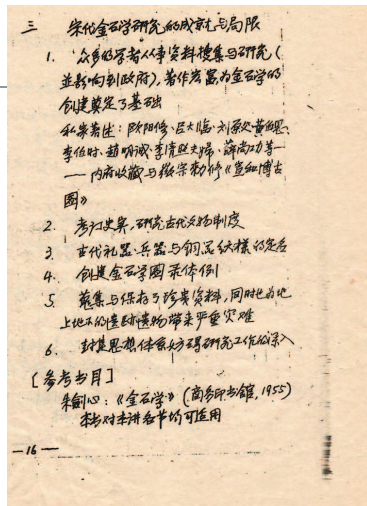 三 宋代金石学研究的成就与局限
1. 众多的学者从事资料搜集与研究(
並影响到政府),著作宏富,为金石学的
创建奠定了基础
私家著述:欧阳修、吕大临、刘原父、黄伯思、
李伯时、赵明诚、李清照夫婦、薛尚功等—
——内府收藏与徽宗勅修《宣和博古
图》
2. 考订史籍,研究古代文物制度
3. 古代礼器、兵器与铜器纹様的定名
4. 创建金石学图录体例
5. 蒐集与保存了珍贵资料,同时也为地
上地下的遗跡遗物带来严重灾难
6. 封建思想体系妨碍研究工作的深入
[参考书目]
朱剑心:《金石学》(商务印书館,1955)
本书对本讲各节均可适用
—16—